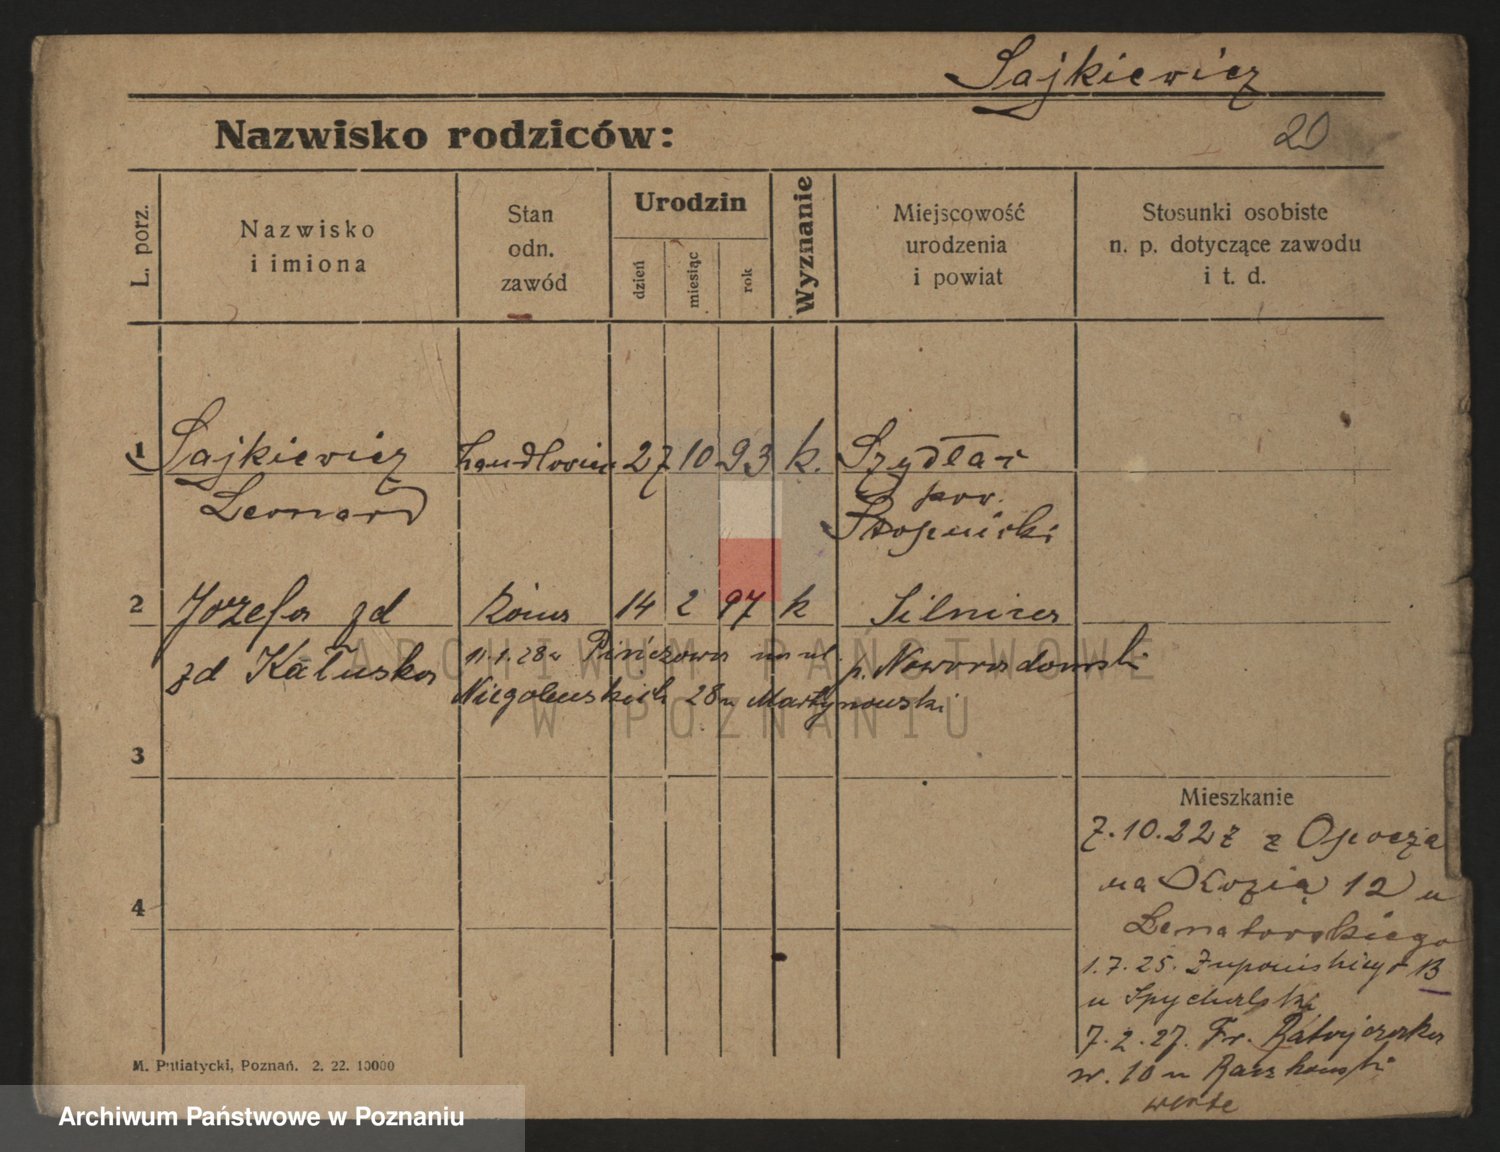 Sajkiewicz
Nazwisko rodziców:
20
L. porz.
Nazwisko
i imiona
Stan
odn.
zawód
Urodzin
dzień
miesiąc
rok
Wyznanie
Miejscowość
urodzenia
i powiat
Stosunki osobiste
n. p. dotyczące zawodu
i t. d.
1 Sajkiewicz handlowiec 27 10 93 k. Szydłów
Leonard pow.
Stopnicki
2 Józefa zd żona 14 2 97 k Silnica
zd Kałuska 11.1.28 z Pińczowa na ul. p. Noworadomski
Niegolewskich 28 u Martynowski
3
4
Mieszkanie
7.10.22 z Opocza
na Kozią 12 u
Senatorskiego
1.7.25. Żupańskiego 13
u Spychalski
7.2.27. Fr. Ratajczaka
nr. 10 u Raczkowski
verte
M. Putiatycki, Poznań. 2. 22. 10000
ARCHIWUM PAŃSTWOWE
W POZNANIU
Archiwum Państwowe w Poznaniu